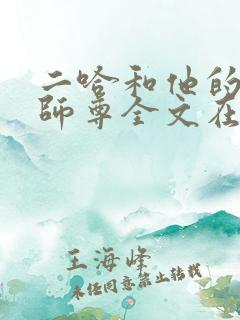 二哈和他的
師尊全文在
王海峰
未经同意禁止转载